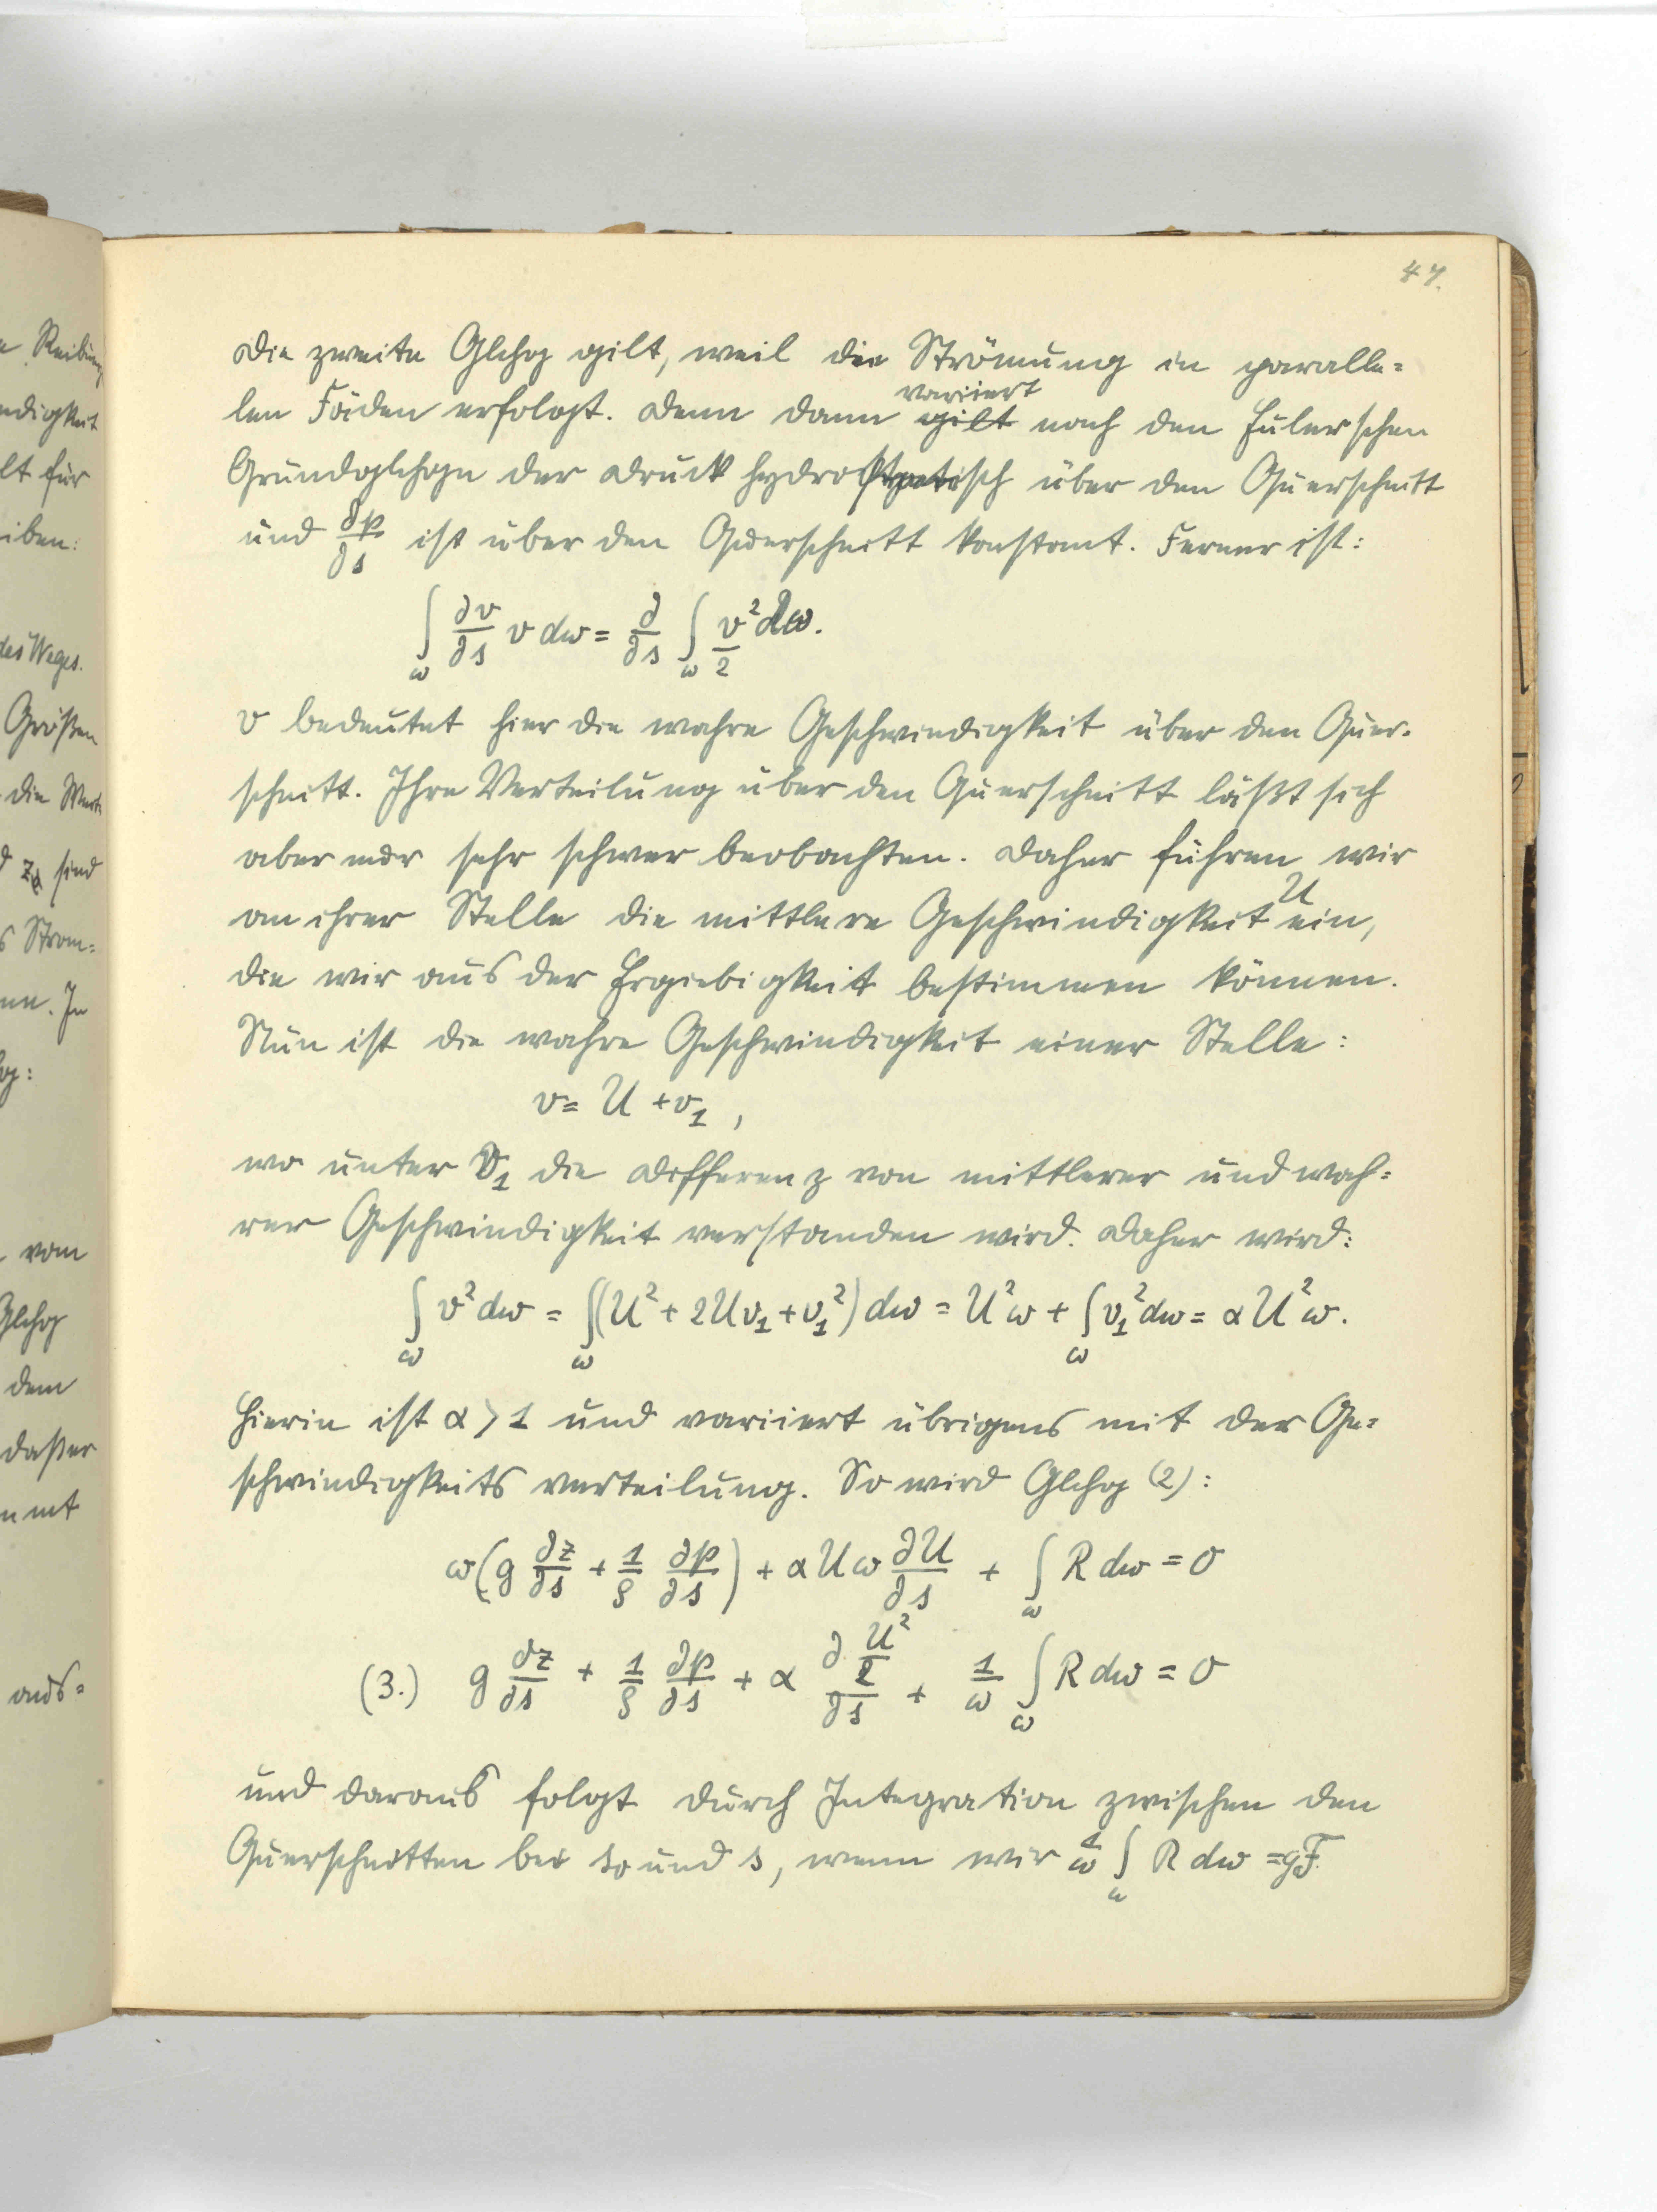 47.
Die zweite Glchg gilt, weil die Strömung in paralle=
len Fäden erfolgt. Denn dann variiert nach den Eulerschen
Grundglchgn der Druck hydrostatisch über den Querschnitt
und ∂p/∂s ist über den Querschnitt konstant. Ferner ist:
∫_ω ∂v/∂s v dω = ∂/∂s ∫_ω v²/2 dω.
v bedeutet hier die wahre Geschwindigkeit über den Quer-
schnitt. Ihre Verteilung über den Querschnitt läßt sich
aber nur sehr schwer beobachten. Daher führen wir
an ihrer Stelle die mittlere Geschwindigkeit U ein,
die wir aus der Ergiebigkeit bestimmen können.
Nun ist die wahre Geschwindigkeit einer Stelle:
v = U + v₁,
wo unter v₁ die Differenz von mittlerer und wah=
rer Geschwindigkeit verstanden wird. Daher wird:
∫_ω v² dω = ∫_ω (U² + 2Uv₁ + v₁²) dω = U²ω + ∫_ω v₁² dω = αU²ω.
Hierin ist α > 1 und variiert übrigens mit der Ge=
schwindigkeitsverteilung. So wird Glchg (2):
ω(g ∂z/∂s + 1/ρ ∂p/∂s) + αUω ∂U/∂s + ∫_ω R dω = 0
(3.) g ∂z/∂s + 1/ρ ∂p/∂s + α ∂ U²/2 / ∂s + 1/ω ∫_ω R dω = 0
und daraus folgt durch Integration zwischen den
Querschnitten bei s₀ und s, wenn wir 1/ω ∫_ω R dω = gF
e Reibung
ndigkeit
lt für
iben:
des Weges.
Größen
die Werte
sind
s Strom=
nn. In
vom
Glchg
dem
daßer
nmt
aus=